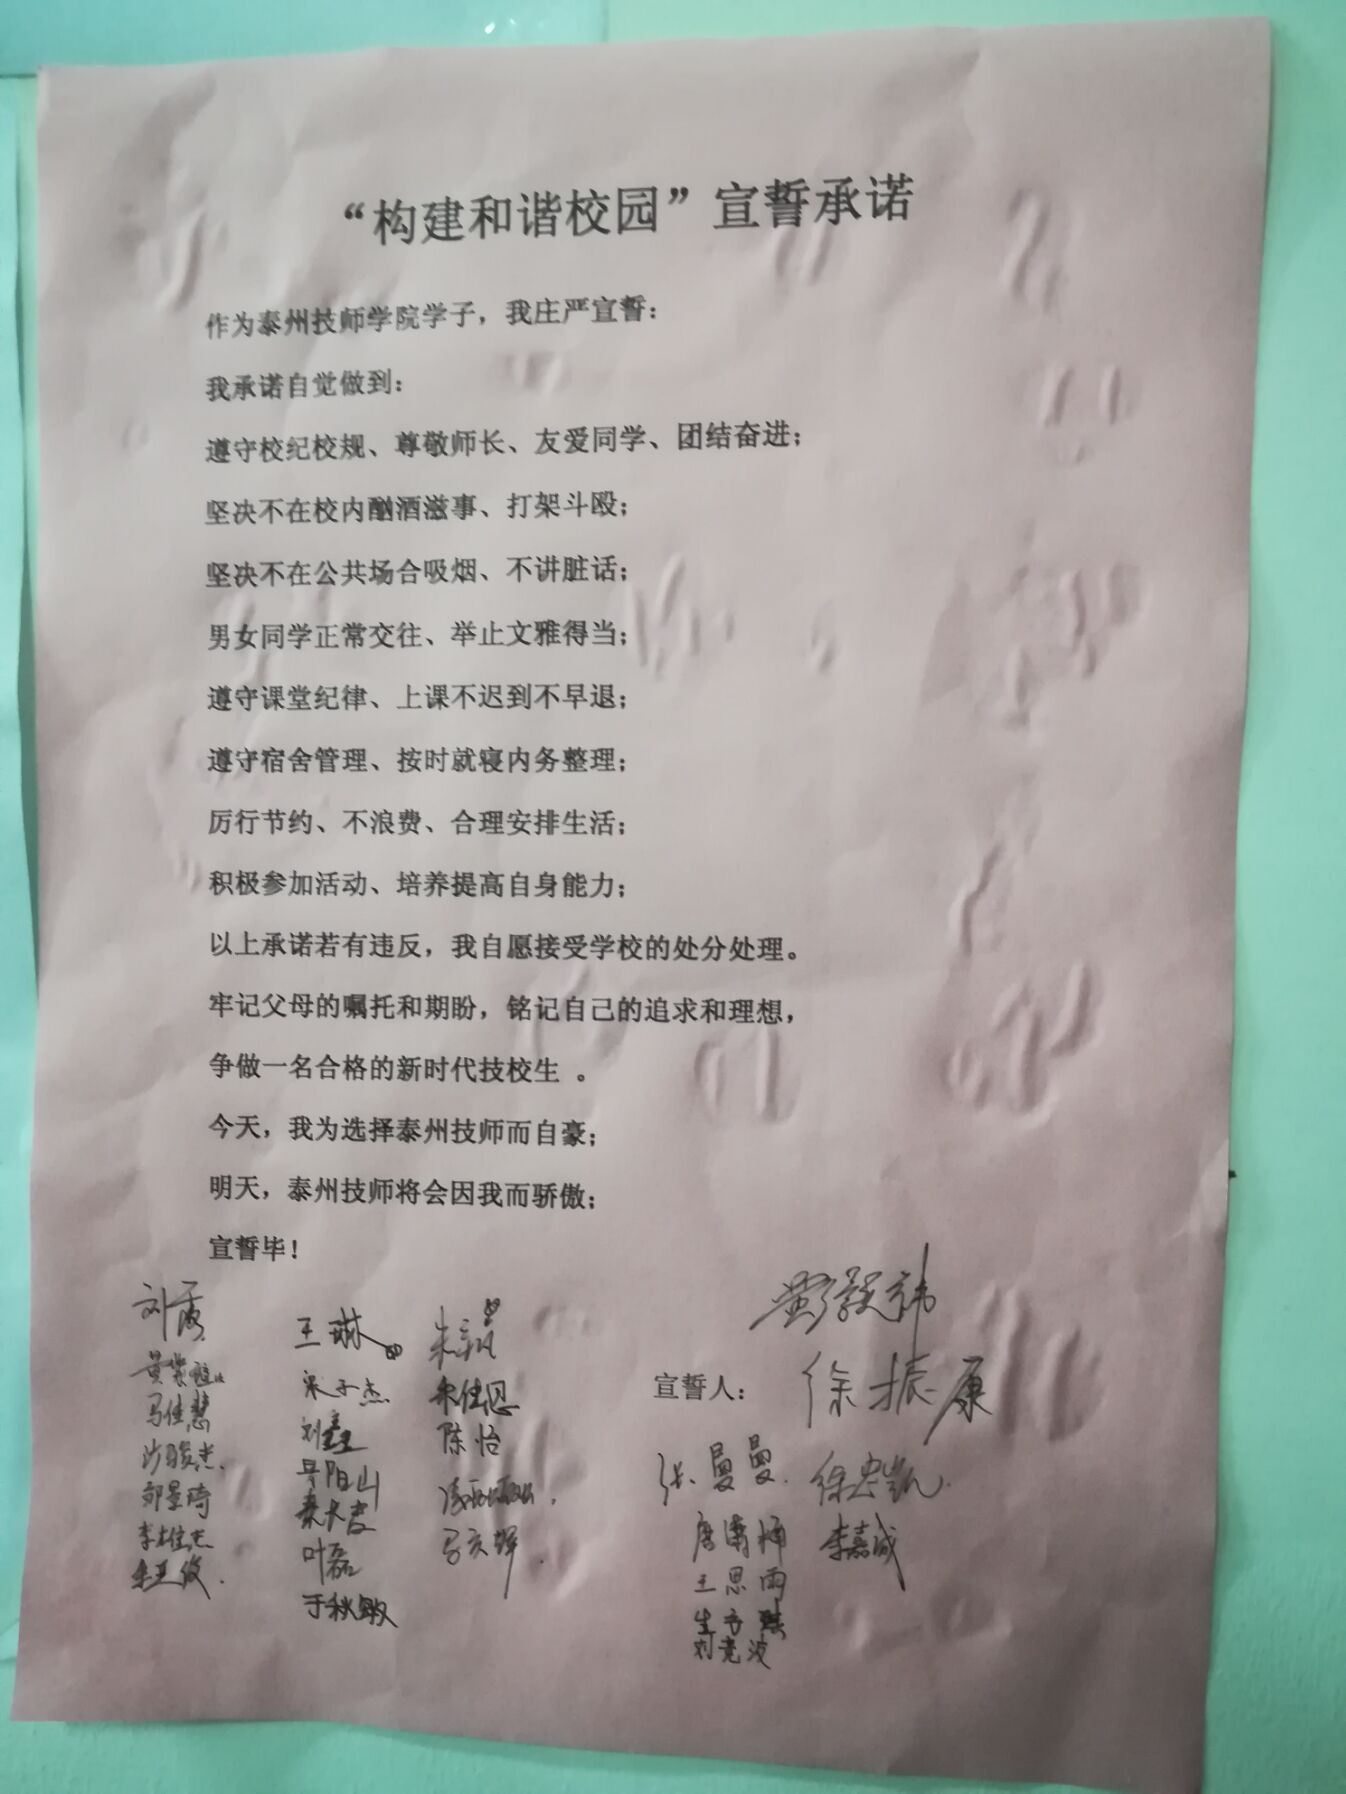 “构建和谐校园”宣誓承诺
作为泰州技师学院学子，我庄严宣誓：
我承诺自觉做到：
遵守校纪校规、尊敬师长、友爱同学、团结奋进；
坚决不在校内酗酒滋事、打架斗殴；
坚决不在公共场合吸烟、不讲脏话；
男女同学正常交往、举止文雅得当；
遵守课堂纪律、上课不迟到不早退；
遵守宿舍管理、按时就寝内务整理；
厉行节约、不浪费、合理安排生活；
积极参加活动、培养提高自身能力；
以上承诺若有违反，我自愿接受学校的处分处理。
牢记父母的嘱托和期盼，铭记自己的追求和理想，
争做一名合格的新时代技校生 。
今天，我为选择泰州技师而自豪；
明天，泰州技师将会因我而骄傲；
宣誓毕！
刘霞
马佳慧
沙骏杰
郑景琦
王琳
宋子杰
刘鑫
叶磊
于秋敏
朱佳恩
陈怡
宣誓人：
徐振康
张曼曼
徐忠凯
李嘉诚
王思雨
刘竞波